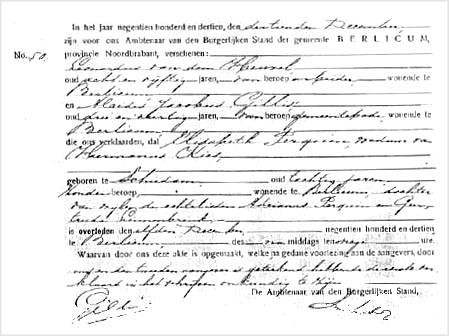 In het jaar negentien honderd en dertien, den dertienden December,
zijn voor ons Ambtenaar van den Burgerlijken Stand der gemeente BERLICUM,
No. 50. provincie Noordbrabant, verschenen:
Leonardus van den Heuvel
oud acht en vijftig jaren, van beroep wonende te
Berlicum
en Jacobus Gillis
oud drie en veertig jaren, van beroep gemeentebode, wonende te
Berlicum
die ons verklaarden, dat Elisabeth weduwe van
Hermanus
geboren te Schiedam, oud tachtig jaren
zonder beroep, wonende te Berlicum dochter
van wijlen de echtelieden Adrianus en
is overleden den elfden December negentien honderd en dertien
te Berlicum des middags ten ure.
Waarvan door ons deze akte is opgemaakt, welke ja gedane voorlezing aan de aangevers, door
ons en den tweeden aangever is geteekend hebbende de eerste ver
klaard in het schrijven onkundig te zijn
De Ambtenaar van den Burgerlijken Stand,
Gillis